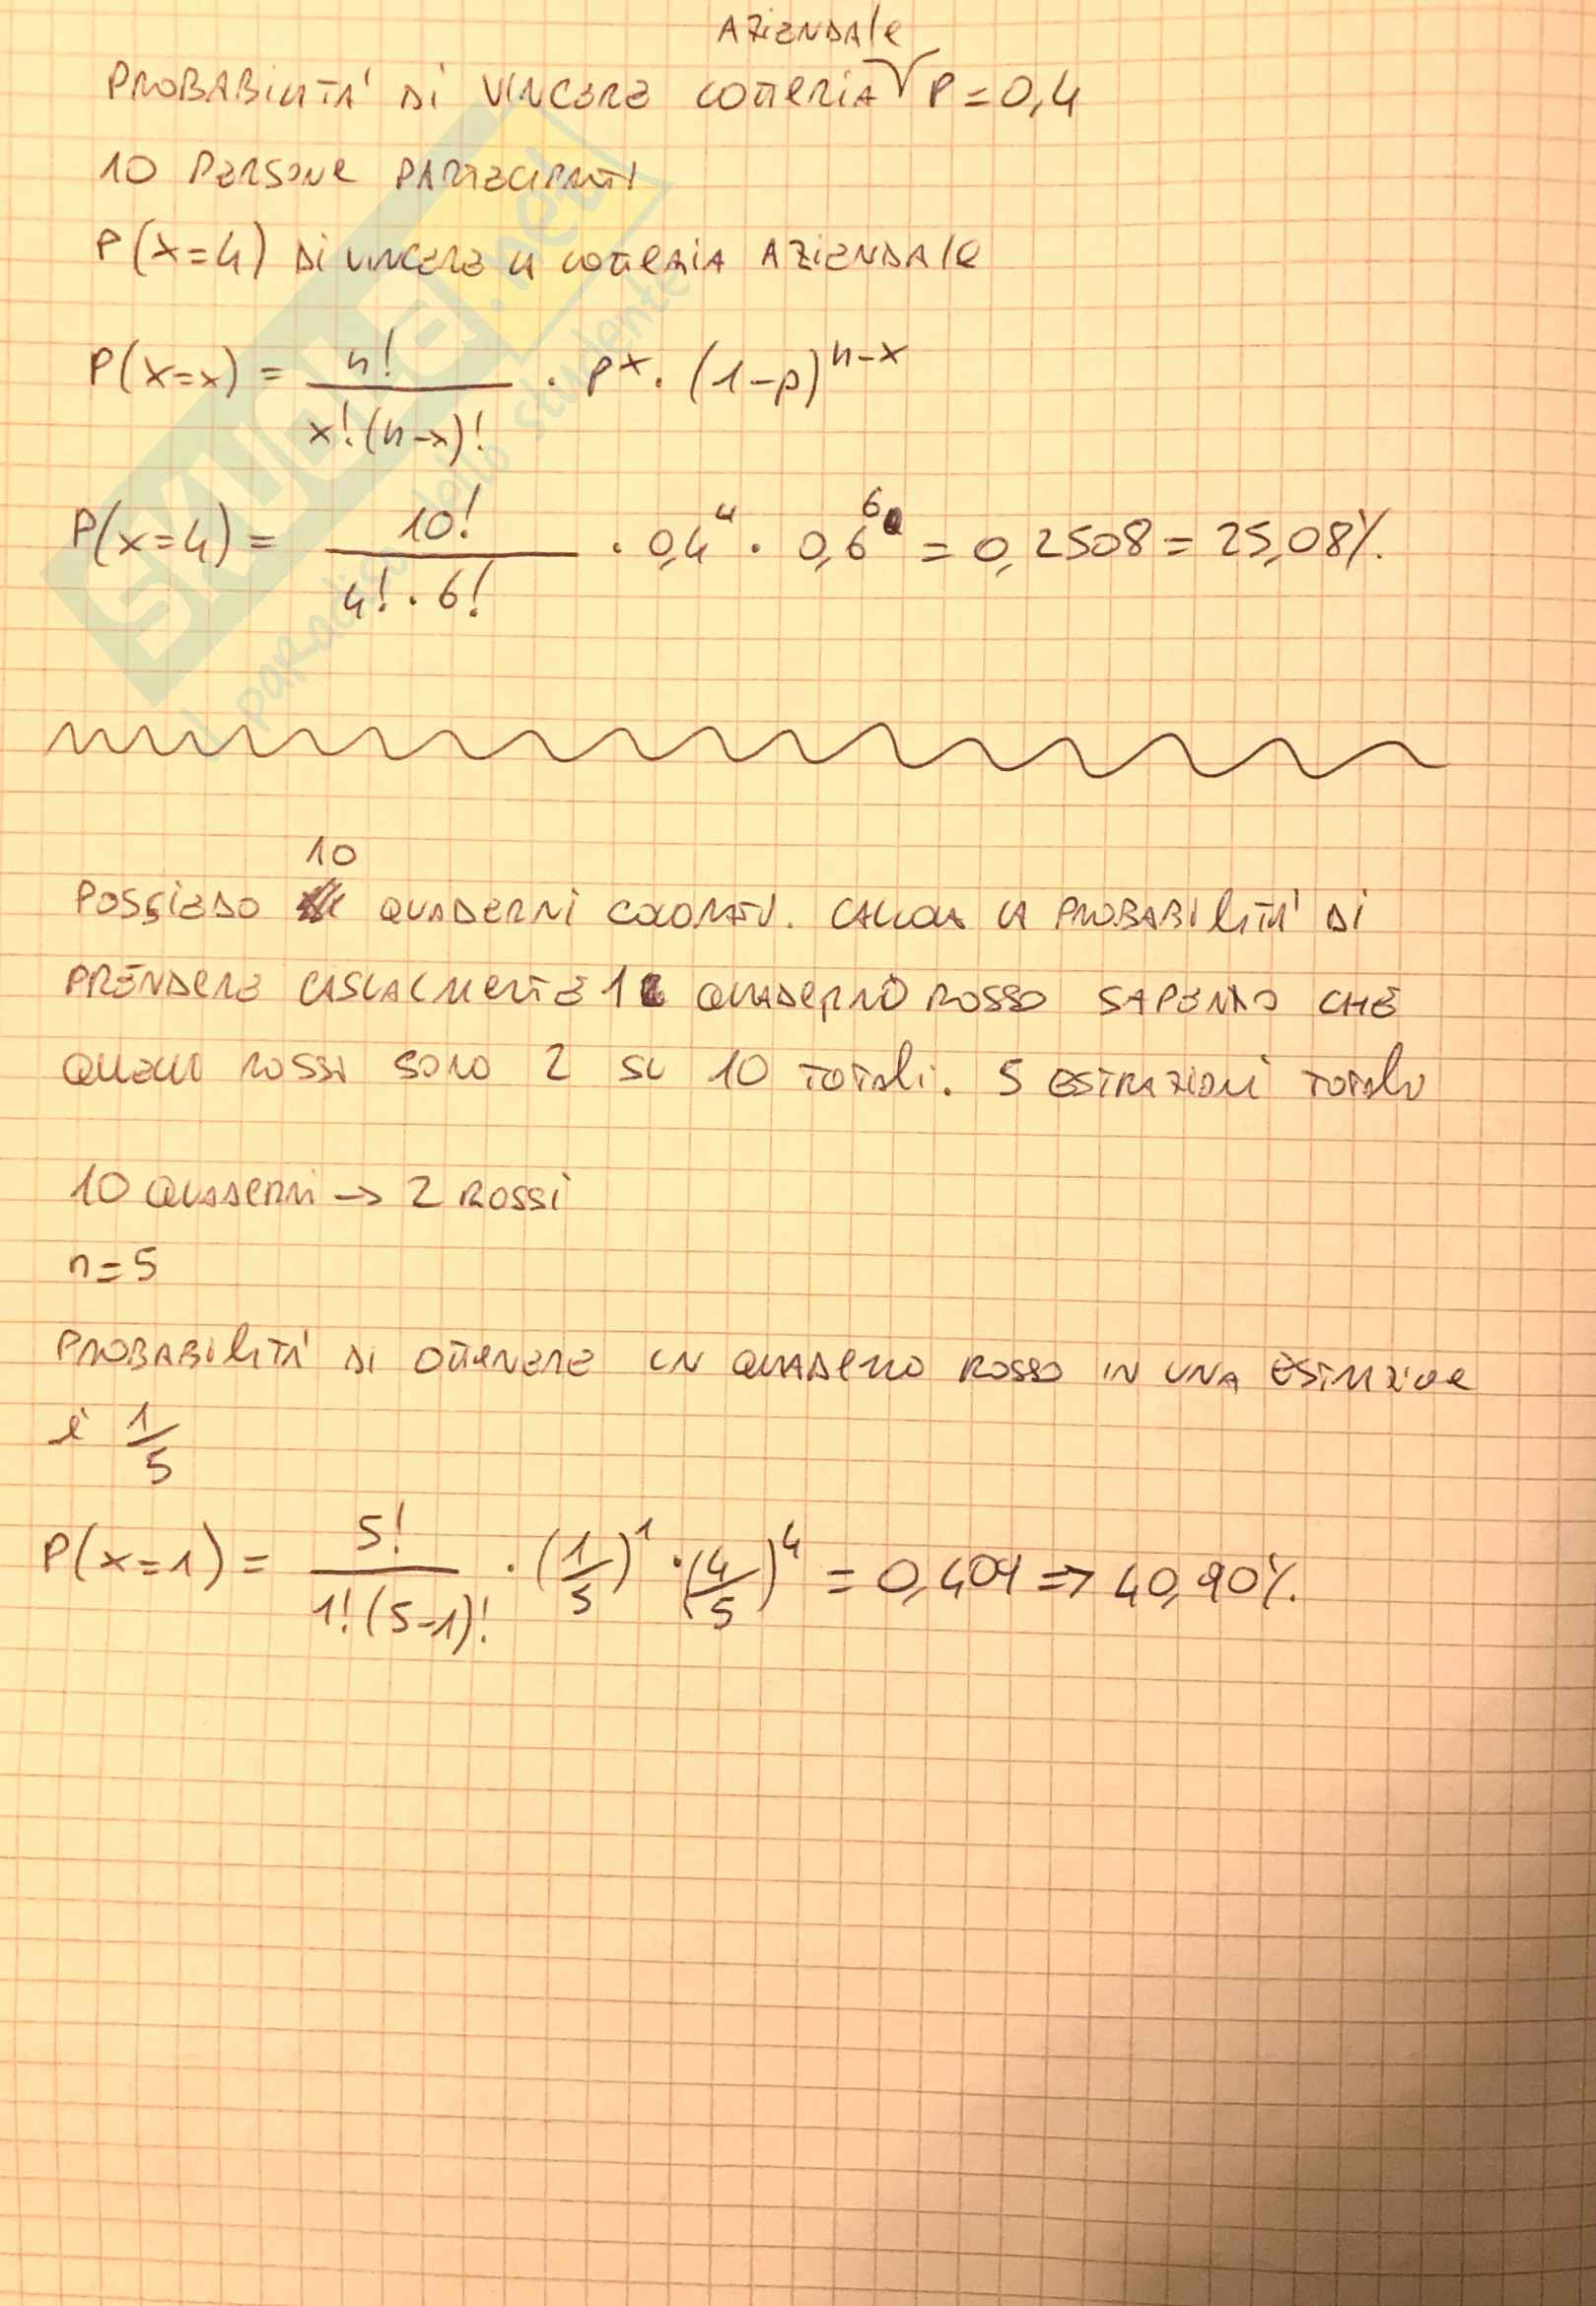 AZIENDALE
PROBABILITA' DI VINCERE LOTTERIA P = 0,4
10 PERSONE PARTECIPANTI
P(x=4) DI VINCERE LA LOTTERIA AZIENDALE
P(x=x) = n! / x!(n-x)! · p^x · (1-p)^n-x
P(x=4) = 10! / 4! · 6! · 0,4^4 · 0,6^6 = 0,2508 = 25,08%
10
POSSIEDO QUADERNI COLORATI. CALCOLA LA PROBABILITA' DI
PRENDERE CASUALMENTE 1 QUADERNO ROSSO SAPENDO CHE
QUELLI ROSSI SONO 2 SU 10 TOTALI. 5 ESTRAZIONI TOTALI
10 QUADERNI → 2 ROSSI
n=5
PROBABILITA' DI OTTENERE UN QUADERNO ROSSO IN UNA ESTRAZIONE
è 1/5
P(x=1) = 5! / 1!(5-1)! · (1/5)^1 · (4/5)^4 = 0,409 => 40,90%
SKUOLA.net
il paradiso dello studente